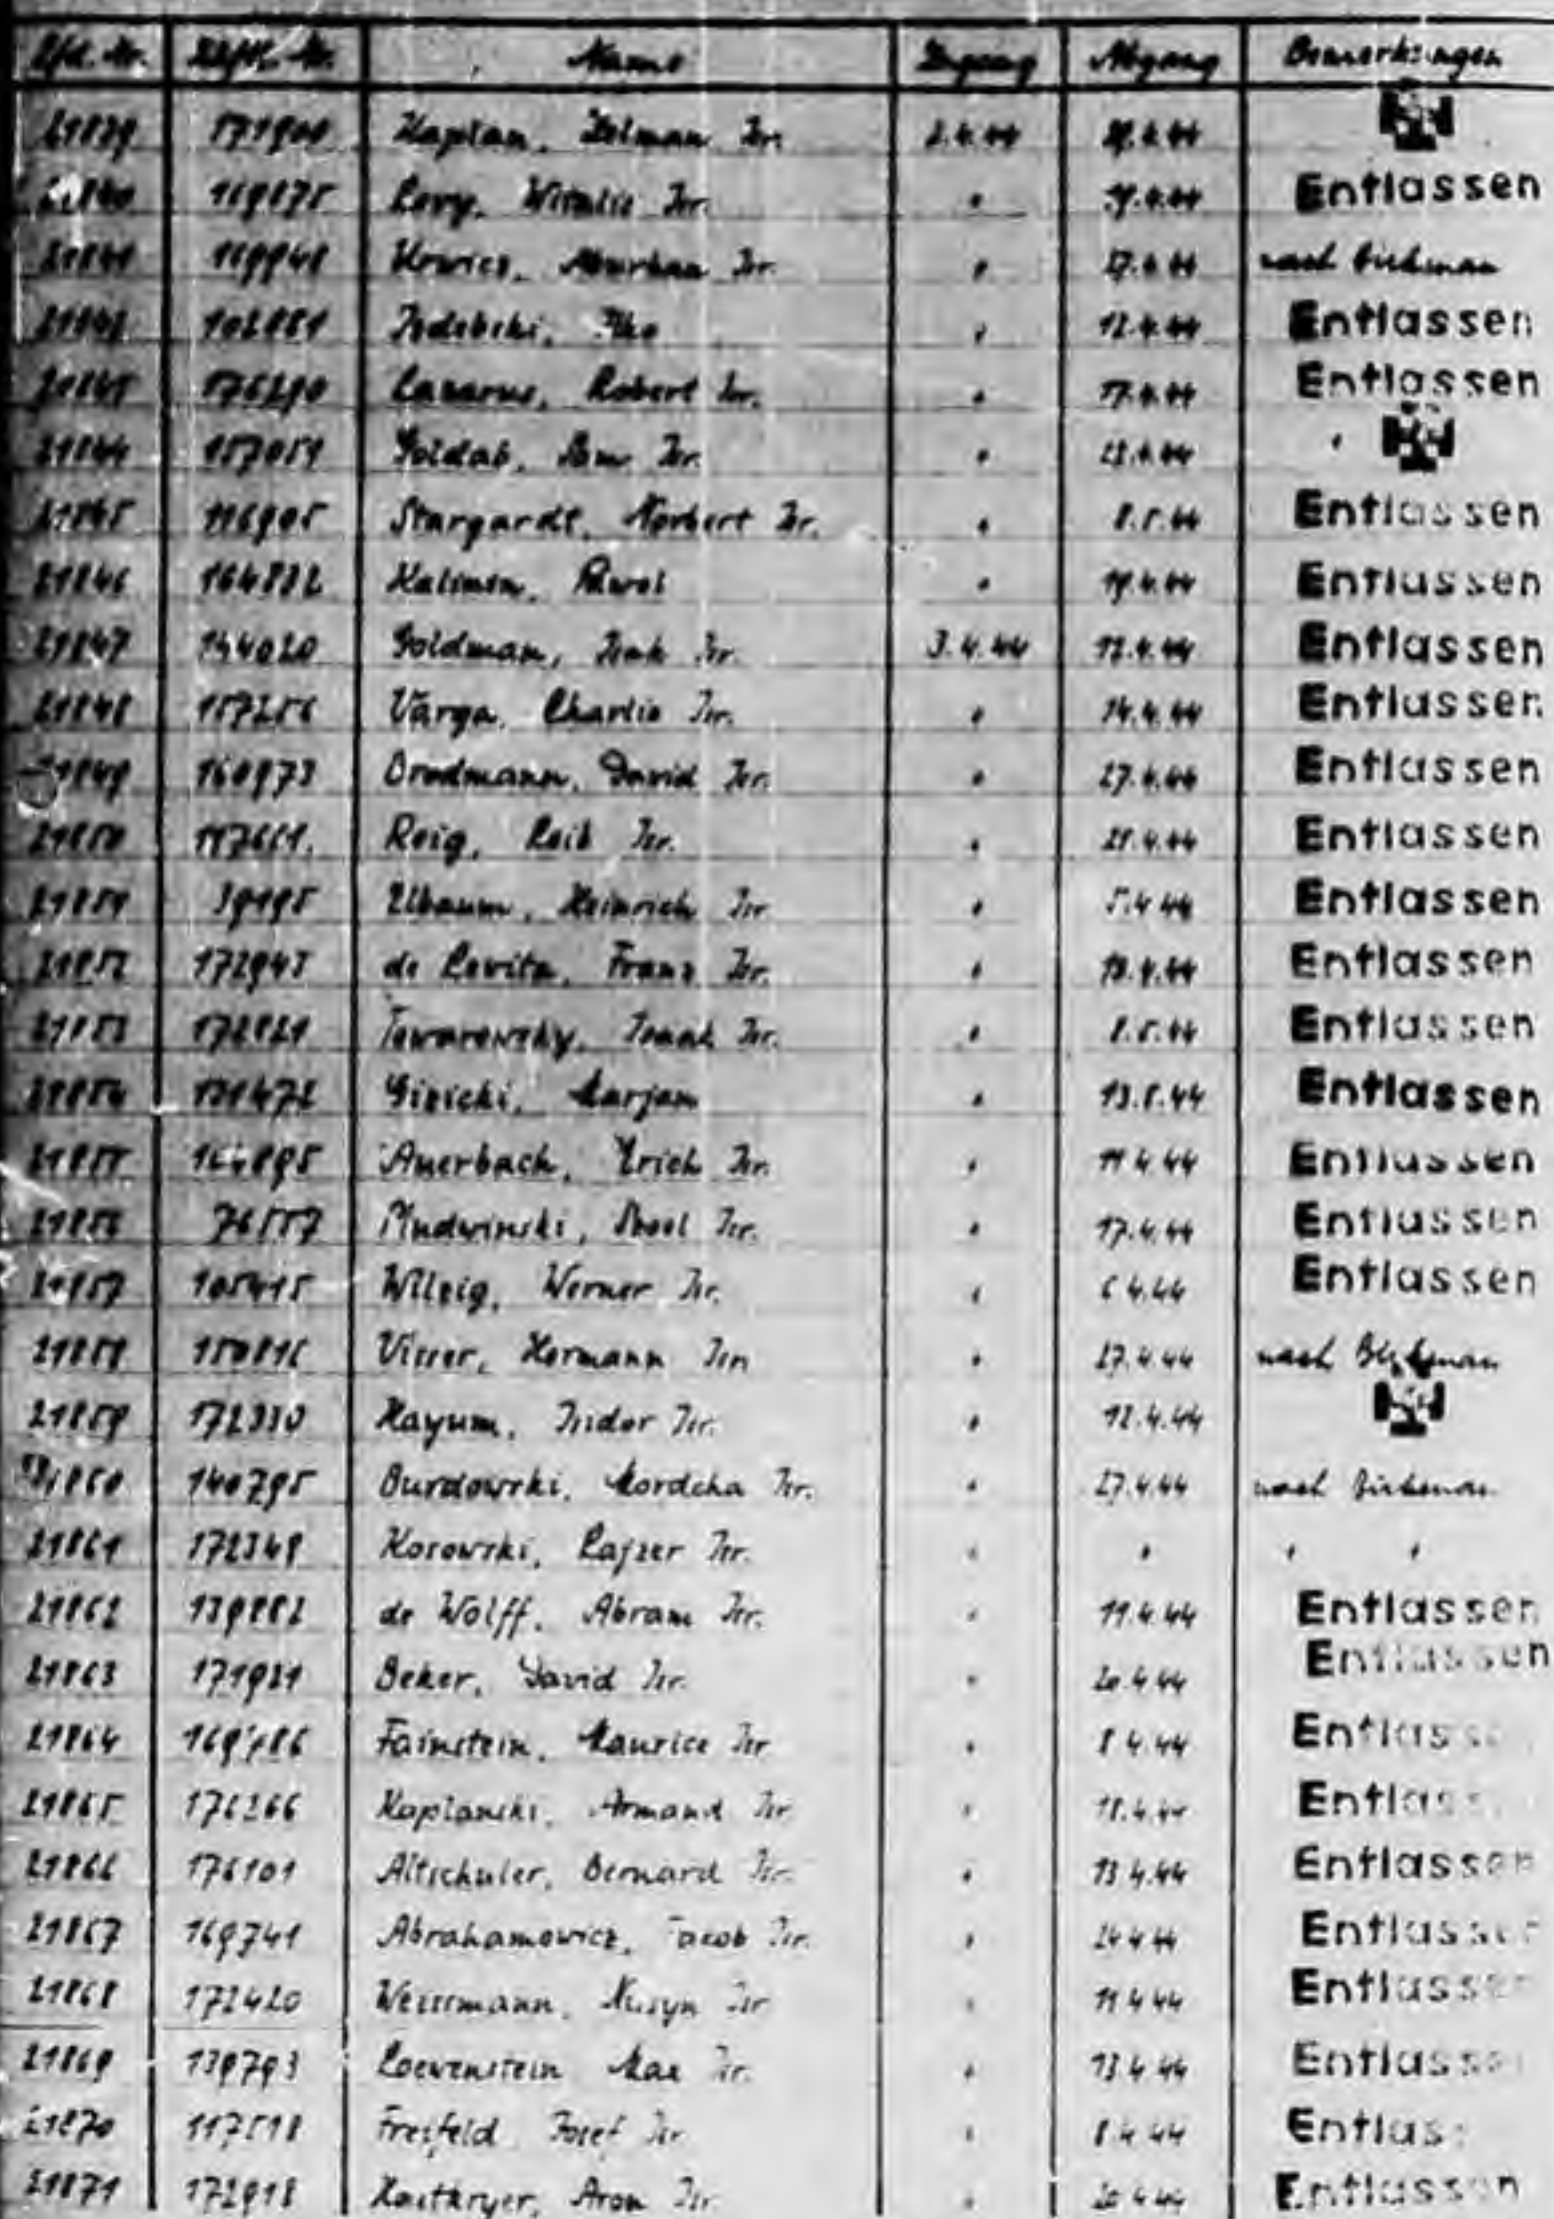 Lfd. Nr. Häftl. Nr. Name Zugang Abgang Bemerkungen
21839 171900 Kaplan, Zelman Isr. 2.4.44
21840 169875 Levy, Isr. " 19.4.44 Entlassen
21841 Isr. " 27.4.44 nach Birkenau
21842 " 12.4.44 Entlassen
21843 176290 Lazarus, Robert Isr. " 17.4.44 Entlassen
21844 157051 Isr. " 23.4.44 "
21845 116905 Stargardt, Norbert Isr. " 8.5.44 Entlassen
21846 164832 Kalinin, Pawel " 19.4.44 Entlassen
21847 144020 Goldman, Isr. 3.4.44 12.4.44 Entlassen
21848 157256 Varga, Charlie Isr. " 14.4.44 Entlassen
21849 160973 Brodmann, David Isr. " 27.4.44 Entlassen
21850 117661. Reig, Leib Isr. " 21.4.44 Entlassen
21851 39195 Elbaum, Heinrich Isr. " 5.4.44 Entlassen
21852 172945 de Levita, Franz Isr. " 10.4.44 Entlassen
21853 172821 Towarowsky, Isaak Isr. " 8.5.44 Entlassen
21854 131472 Gizicki, Marjam " 13.5.44 Entlassen
21855 164895 Auerbach, Erich Isr. " 11.4.44 Entlassen
21856 76557 Isr. " 17.4.44 Entlassen
21857 105415 Wilzig, Werner Isr. " 6.4.44 Entlassen
21858 150816 Visser, Hermann Isr. " 27.4.44 nach Birkenau
21859 172330 Kayum, Isidor Isr. " 12.4.44
21860 140795 Burdowski, Mordcha Isr. " 27.4.44 nach Birkenau
21861 172349 Kosowski, Lajzer Isr. " " " "
21862 139882 de Wolff, Abram Isr. " 11.4.44 Entlassen
21863 171931 Beker, David Isr. " 20.4.44 Entlassen
21864 Fainstein, Maurice Isr. " 8.4.44 Entlassen
21865 176266 Kaplanski, Armand Isr. " 18.4.44 Entlassen
21866 176101 Altschuler, Bernard Isr. " 13.4.44 Entlassen
21867 169741 Abrahamowicz, Jacob Isr. " 24.4.44 Entlassen
21868 172420 Weissmann, Nusyn Isr. " 11.4.44 Entlassen
21869 139793 Loewenstein Max Isr. " 13.4.44 Entlassen
21870 117518 Freifeld Josef Isr. " 8.4.44 Entlas
21871 172918 Isr. " 20.4.44 Entlassen